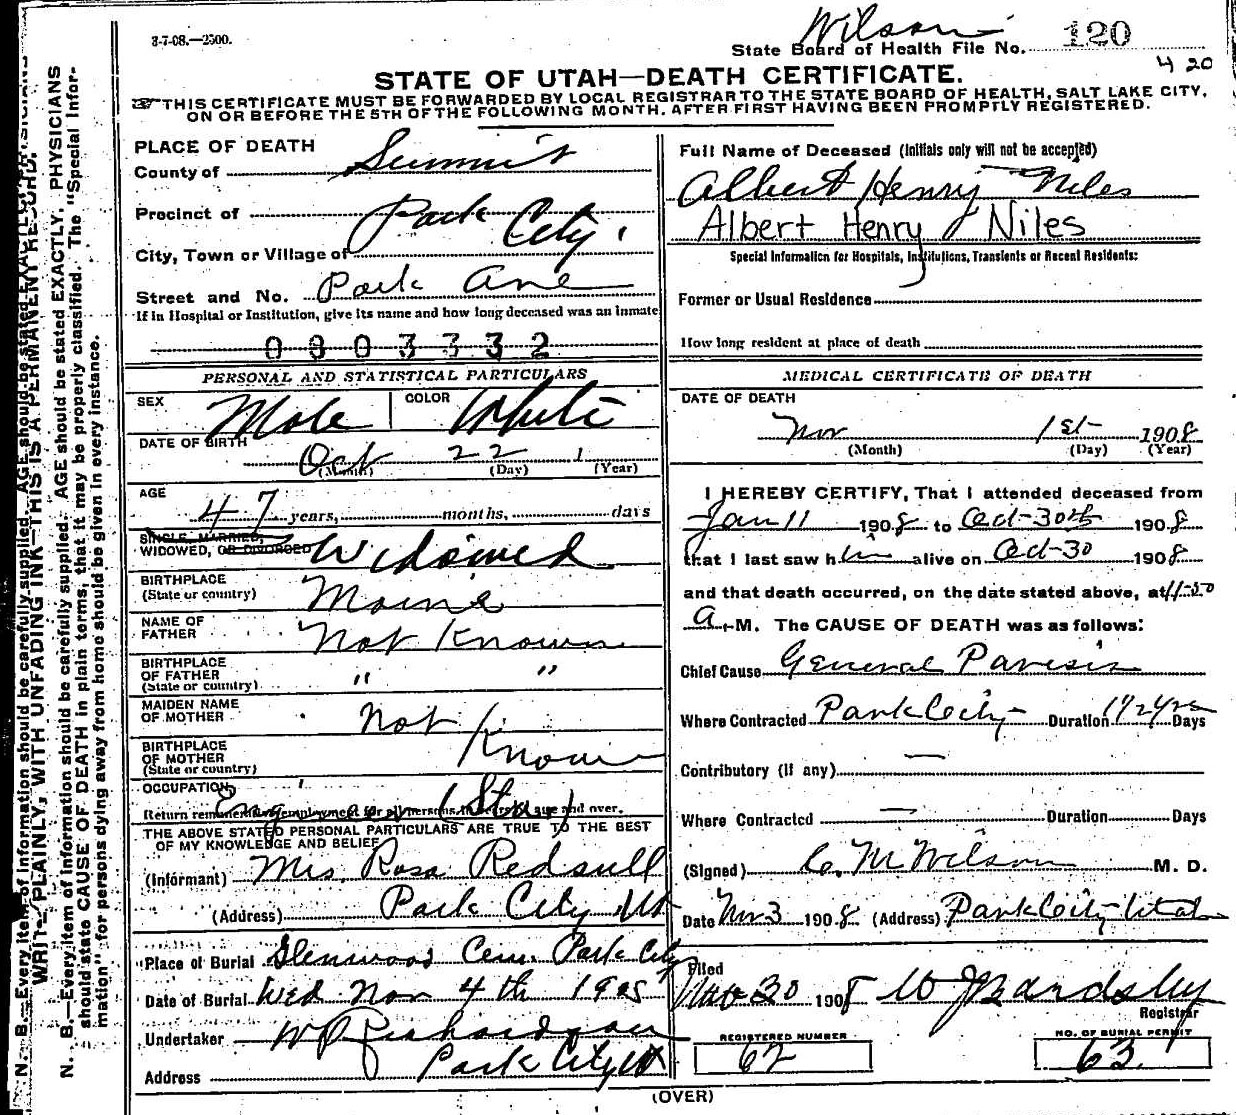 3-7-08.—2500.
Wilson
State Board of Health File No. 120
4 20
STATE OF UTAH—DEATH CERTIFICATE.
THIS CERTIFICATE MUST BE FORWARDED BY LOCAL REGISTRAR TO THE STATE BOARD OF HEALTH, SALT LAKE CITY,
ON OR BEFORE THE 5TH OF THE FOLLOWING MONTH. AFTER FIRST HAVING BEEN PROMPTLY REGISTERED.
PLACE OF DEATH
County of Summit
Precinct of Park City.
City, Town or Village of
Street and No. Park Ave
If in Hospital or Institution, give its name and how long deceased was an inmate
0803332
PERSONAL AND STATISTICAL PARTICULARS
SEX Male COLOR White
DATE OF BIRTH
Oct 22 1
(Month) (Day) (Year)
AGE
47 years, months, days
SINGLE, MARRIED,
WIDOWED, OR DIVORCED Widowed
BIRTHPLACE
(State or country) Maine
NAME OF
FATHER Not Known
BIRTHPLACE
OF FATHER " "
(State or country)
MAIDEN NAME
OF MOTHER Not Known
BIRTHPLACE
OF MOTHER
(State or country)
OCCUPATION
THE ABOVE STATED PERSONAL PARTICULARS ARE TRUE TO THE BEST
OF MY KNOWLEDGE AND BELIEF
(Informant) Mrs. Rosa Redsull
(Address) Park City Ut
Place of Burial Glenwood Cem. Park City
Date of Burial Wed Nov 4th 1908
Undertaker W P Richardson
Address Park City Ut
Full Name of Deceased (Initials only will not be accepted)
Albert Henry Niles
Albert Henry Niles
Special Information for Hospitals, Institutions, Transients or Recent Residents:
Former or Usual Residence
How long resident at place of death
MEDICAL CERTIFICATE OF DEATH
DATE OF DEATH
Nov 1st 1908
(Month) (Day) (Year)
I HEREBY CERTIFY, That I attended deceased from
Jan 11 1908 to Oct-30th 1908
that I last saw him alive on Oct-30 1908
and that death occurred, on the date stated above, at
A. M. The CAUSE OF DEATH was as follows:
Chief Cause General Paresis
Where Contracted Park City Duration Days
Contributory (if any) —
Where Contracted — Duration Days
(Signed) C. M Wilson M. D.
Date Nov 3 1908 (Address) Park City Utah
Filed
Nov 30 1908 W J Bardsley
Registrar
REGISTERED NUMBER
62
NO. OF BURIAL PERMIT
63
(OVER)
WRITE PLAINLY, WITH UNFADING INK—THIS IS A PERMANENT RECORD.
N. B.—Every item of information should be carefully supplied. AGE should be stated EXACTLY. PHYSICIANS
should state CAUSE OF DEATH in plain terms, that it may be properly classified. The "Special Infor-
mation" for persons dying away from home should be given in every instance.